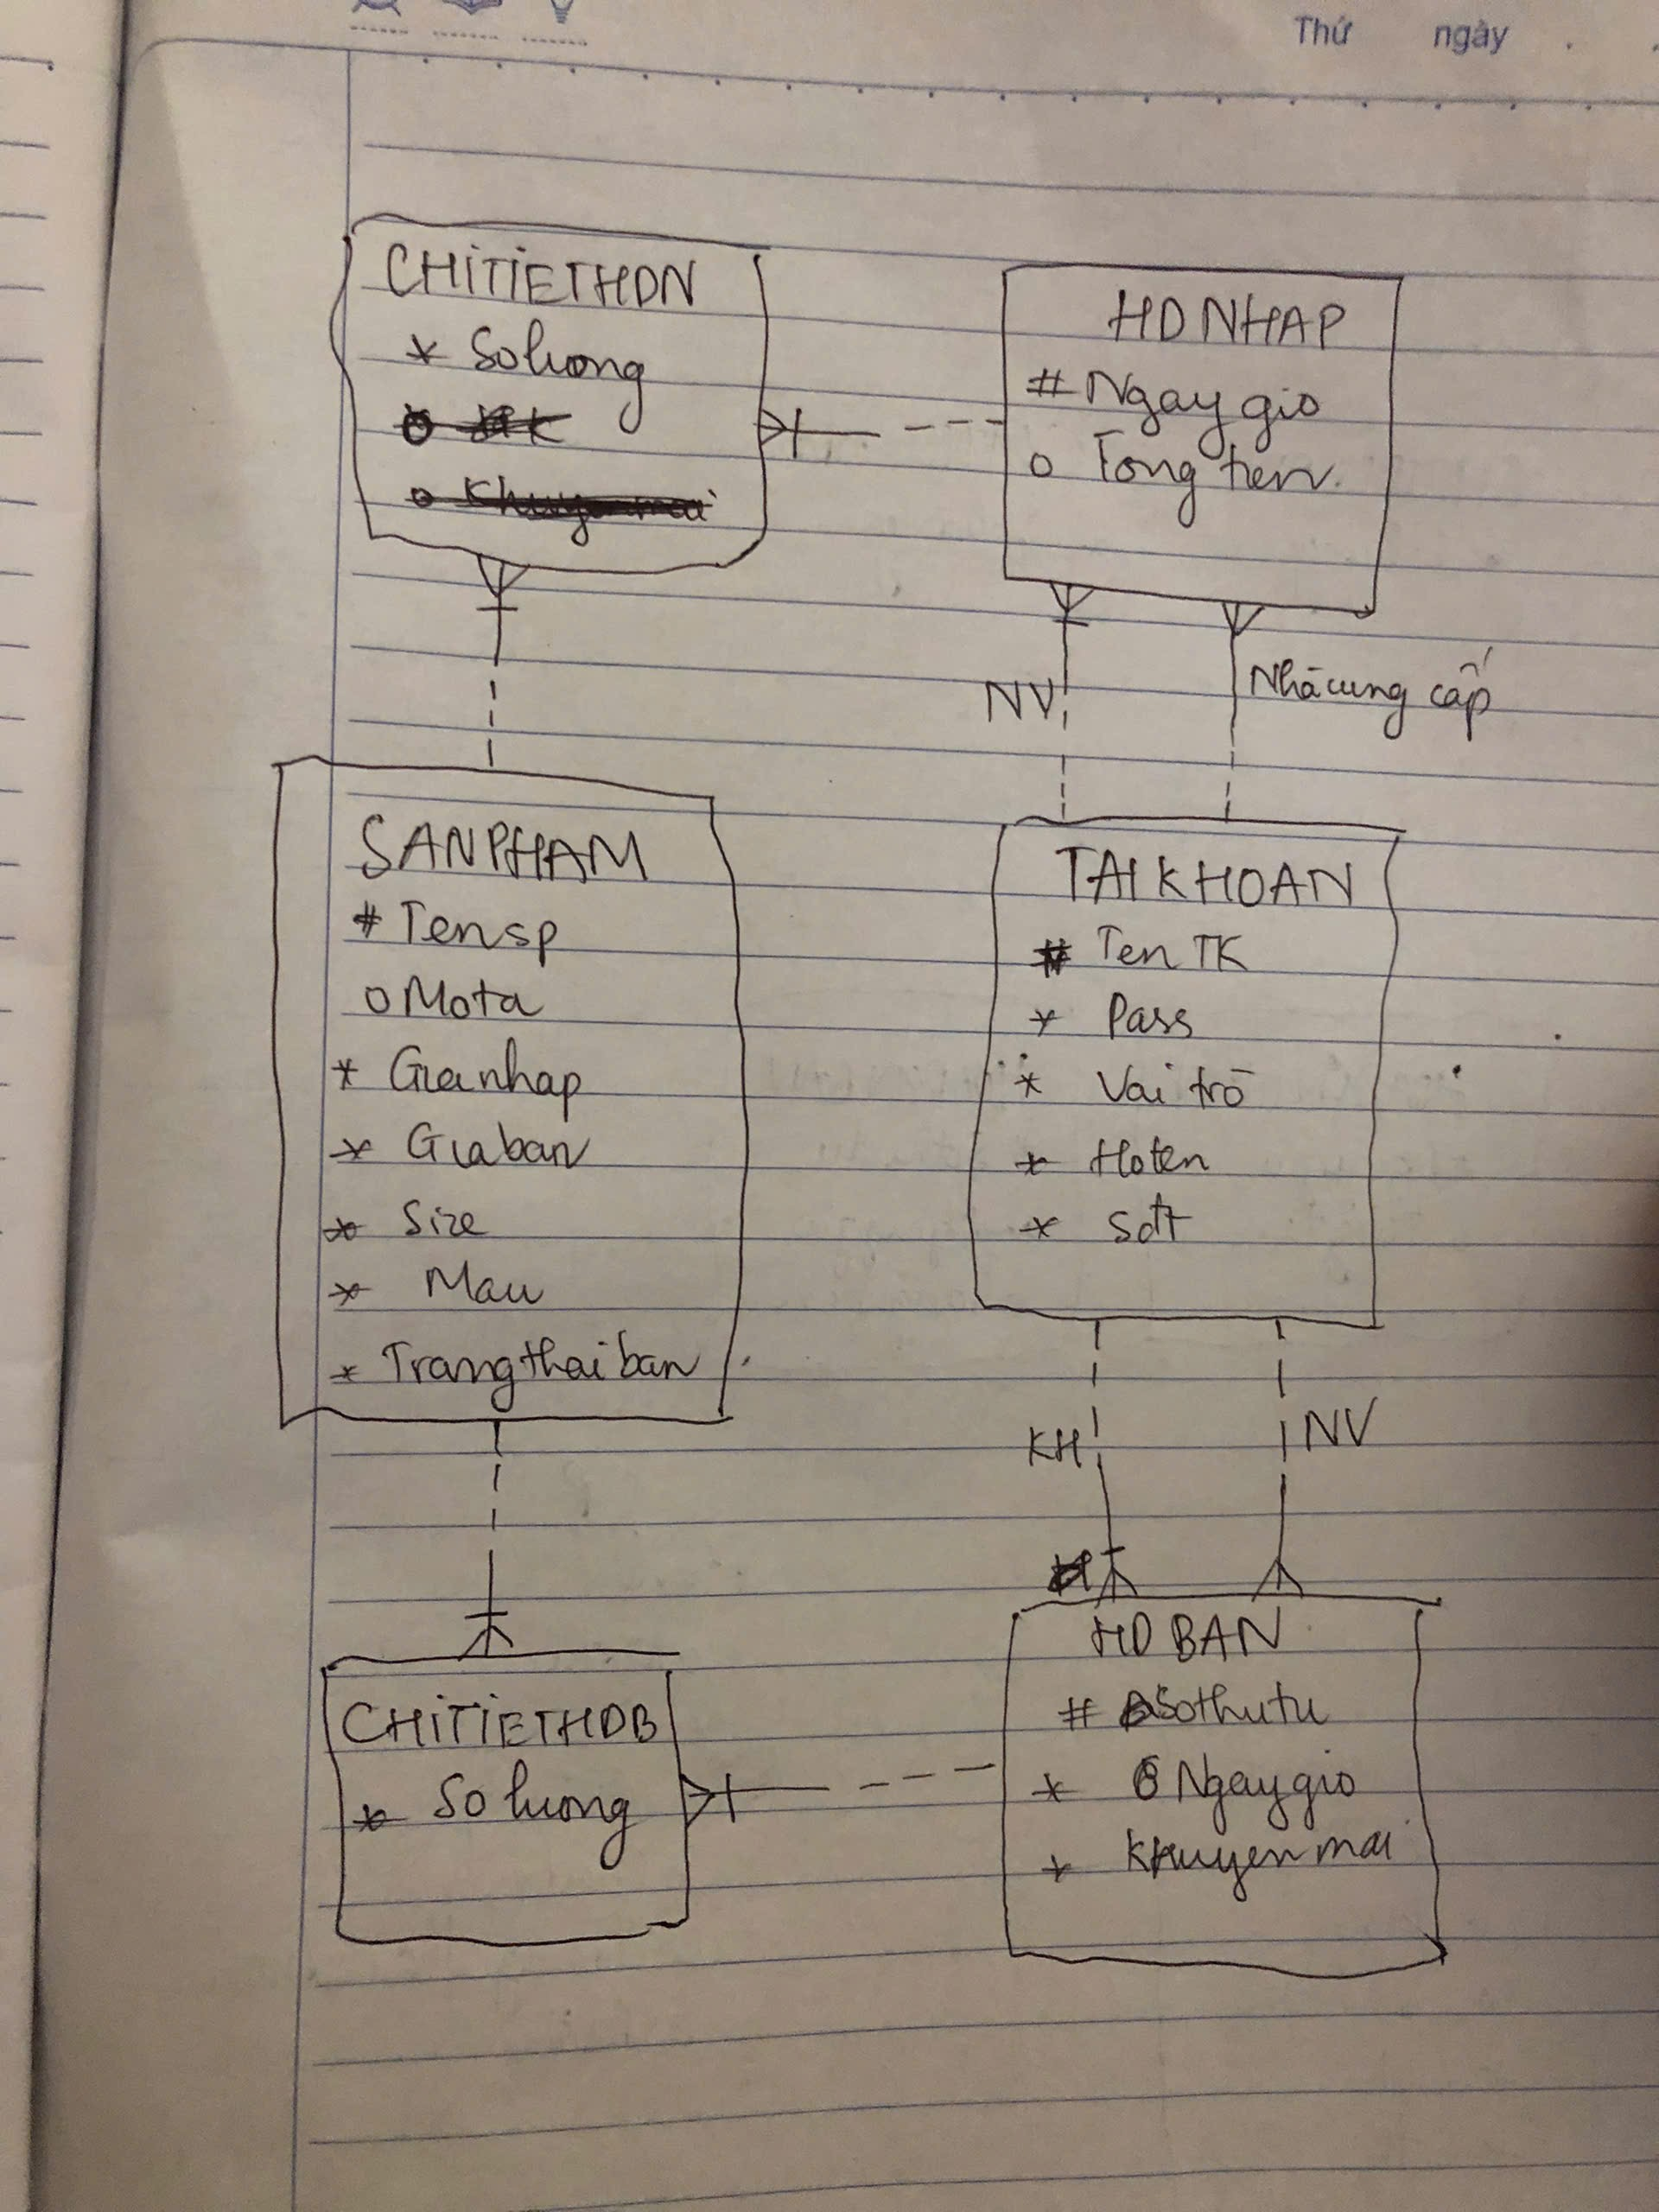 Thứ ngày
CHITIETHDN
* Soluong
HDNHAP
# Ngay gio
o Tongtien
NV
Nhà cung cấp
SANPHAM
# Tensp
o Mota
* Gianhap
* Giaban
* Size
* Mau
* Trangthaiban
TAIKHOAN
# Ten TK
* Pass
* Vai trò
* Hoten
* Sđt
KH
NV
CHITIETHDB
* So luong
HDBAN
# Sothutu
* Ngaygio
* Khuyenmai